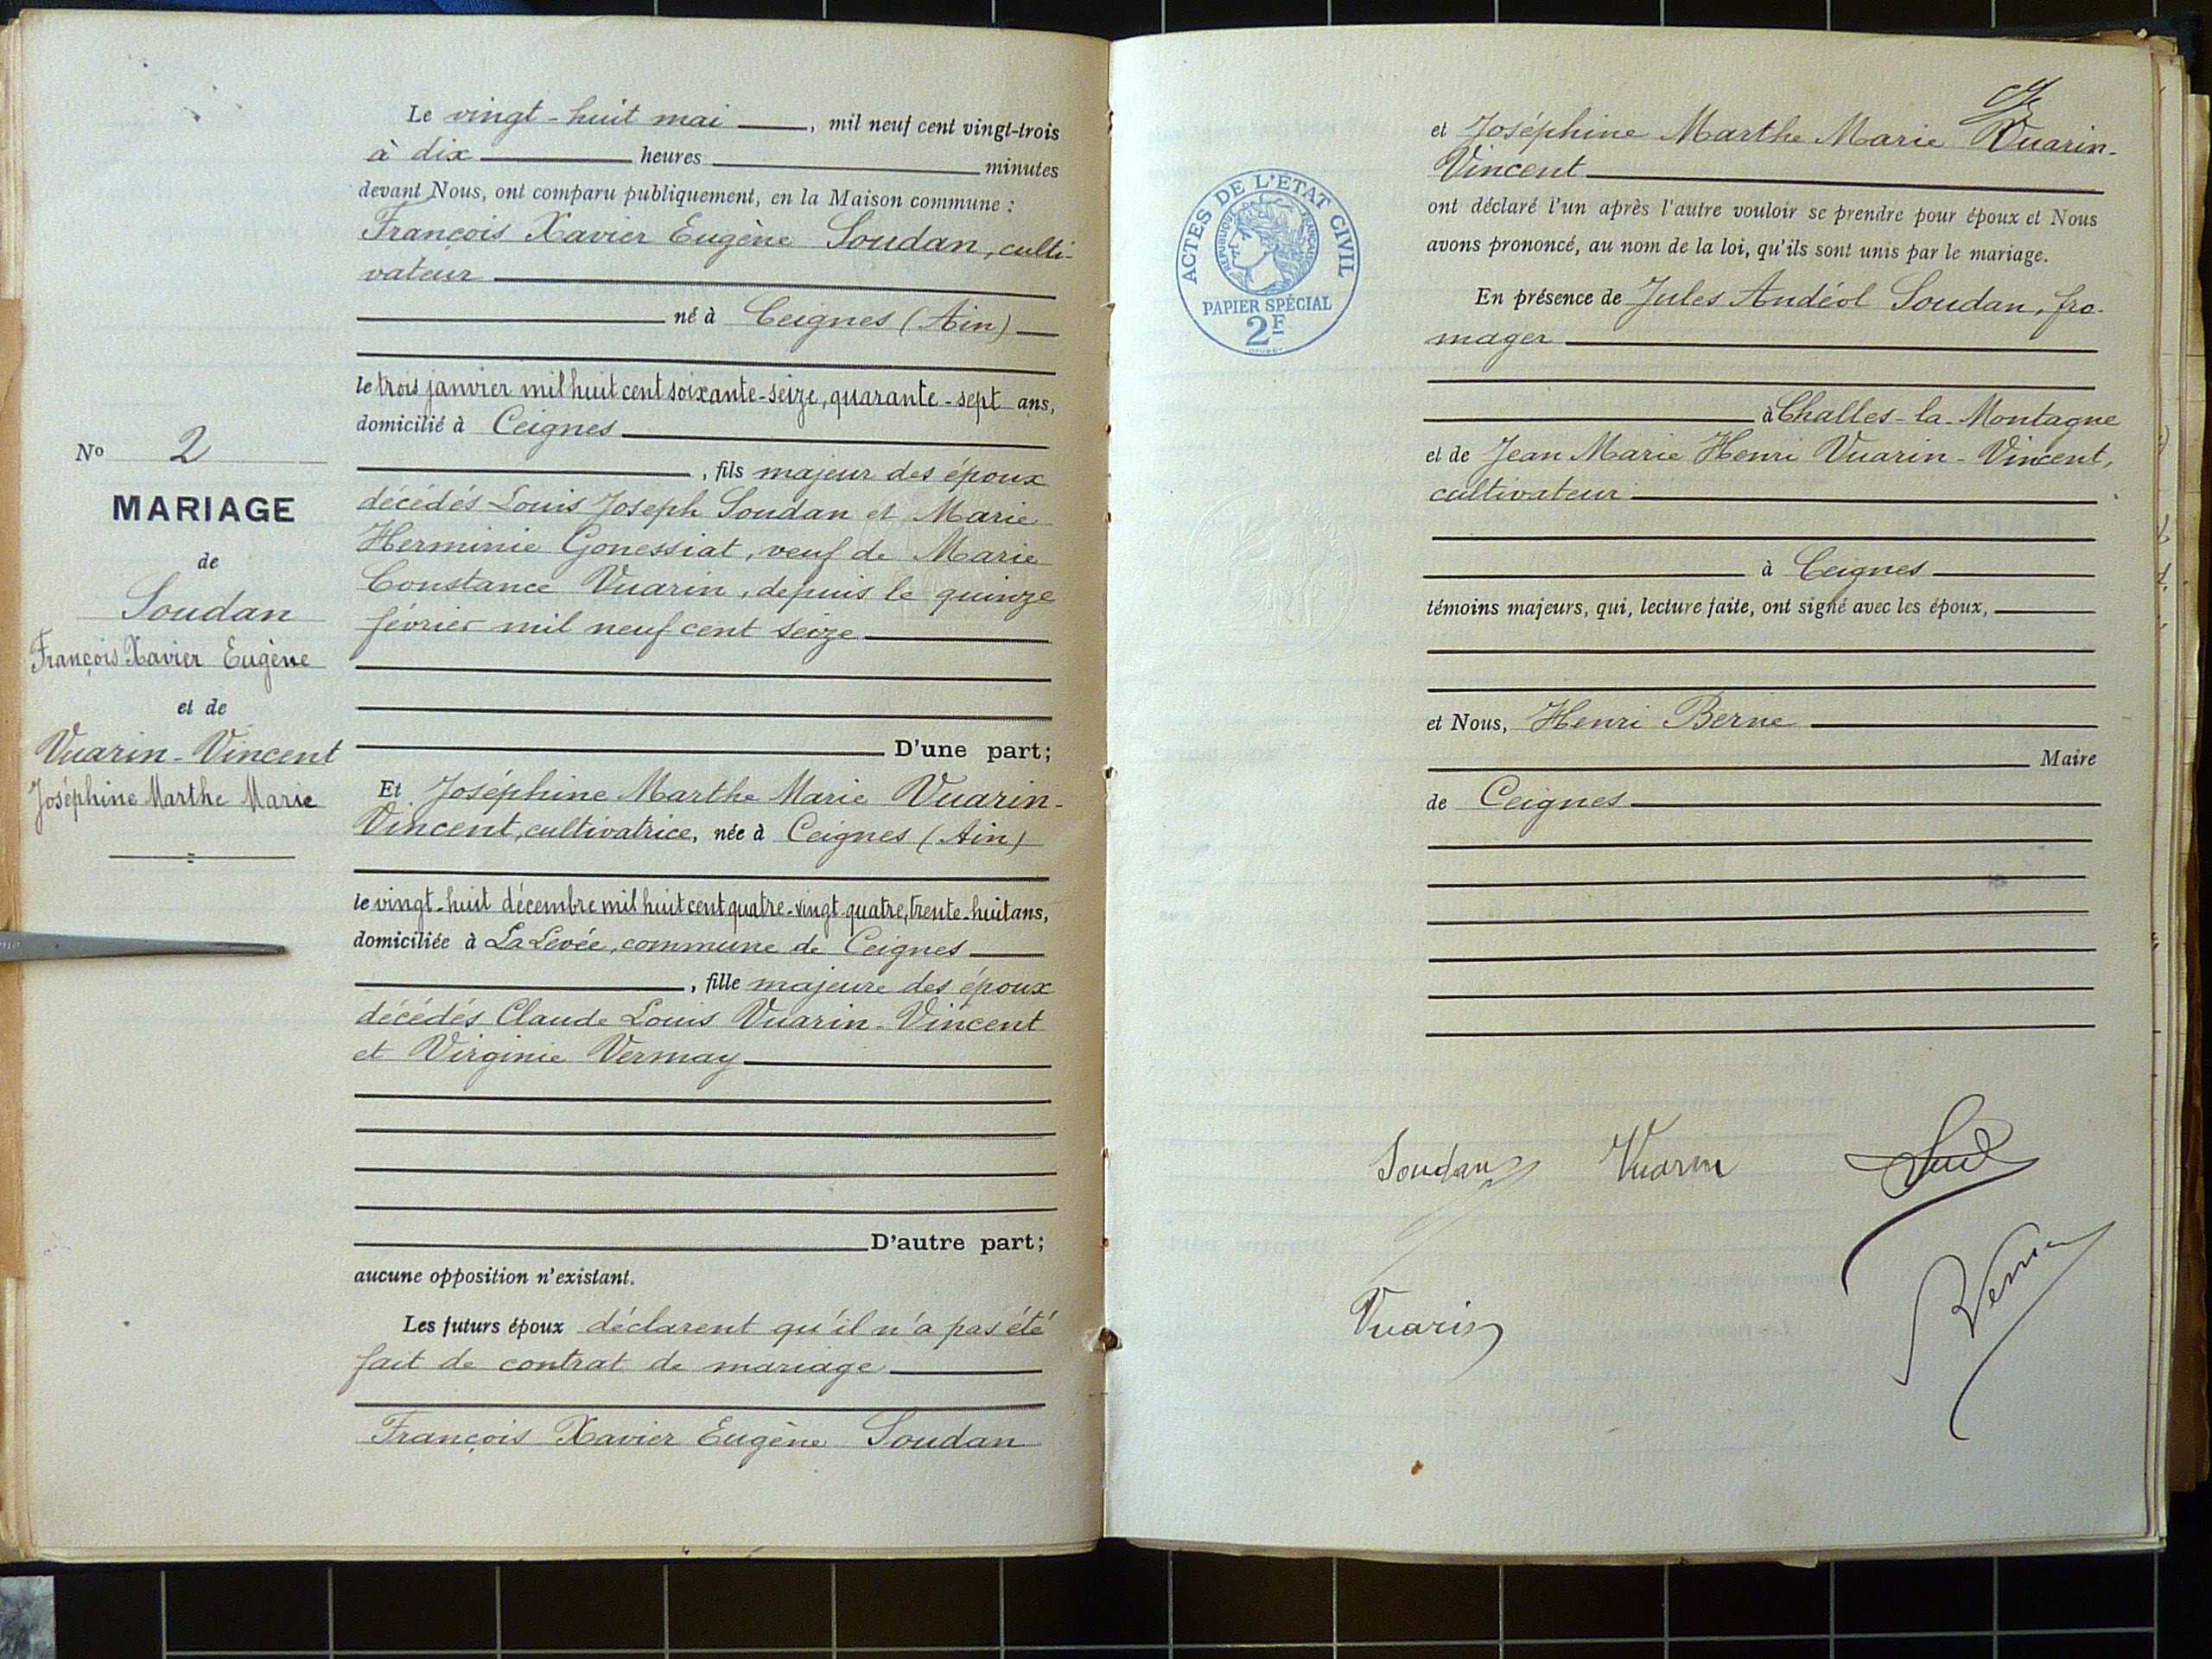 Le vingt-huit mai, mil neuf cent vingt-trois
à dix heures minutes
devant Nous, ont comparu publiquement, en la Maison commune :
François Xavier Eugène Soudan, culti-
vateur
né à Ceignes (Ain)
le trois janvier mil huit cent soixante-seize, quarante-sept ans,
domicilié à Ceignes
, fils majeur des époux
décédés Louis Joseph Soudan et Marie
Herminie Gonessiat, veuf de Marie
Constance Vuarin, depuis le quinze
février mil neuf cent seize
D'une part;
Et Joséphine Marthe Marie Vuarin-
Vincent, cultivatrice, née à Ceignes (Ain)
le vingt-huit décembre mil huit cent quatre-vingt-quatre, trente-huit ans,
domiciliée à La Levée, commune de Ceignes
, fille majeure des époux
décédés Claude Louis Vuarin-Vincent
et Virginie Vermay
D'autre part;
aucune opposition n'existant.
Les futurs époux déclarent qu'il n'a pas été
fait de contrat de mariage
François Xavier Eugène Soudan
No 2
MARIAGE
de
Soudan
François Xavier Eugène
et de
Vuarin-Vincent
Joséphine Marthe Marie
et Joséphine Marthe Marie Vuarin-
Vincent
ont déclaré l'un après l'autre vouloir se prendre pour époux et Nous
avons prononcé, au nom de la loi, qu'ils sont unis par le mariage.
En présence de Jules Andéol Soudan, fro-
mager
à Challes-la-Montagne
et de Jean Marie Henri Vuarin-Vincent,
cultivateur
à Ceignes
témoins majeurs, qui, lecture faite, ont signé avec les époux,
et Nous, Henri Berne
Maire
de Ceignes
ACTES DE L'ÉTAT CIVIL
RÉPUBLIQUE FRANÇAISE
PAPIER SPÉCIAL
2F
Soudan Vuarin
Vuarin
Berne